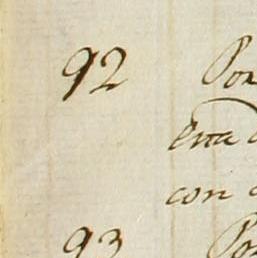 92 Por
esta
con
93 Po